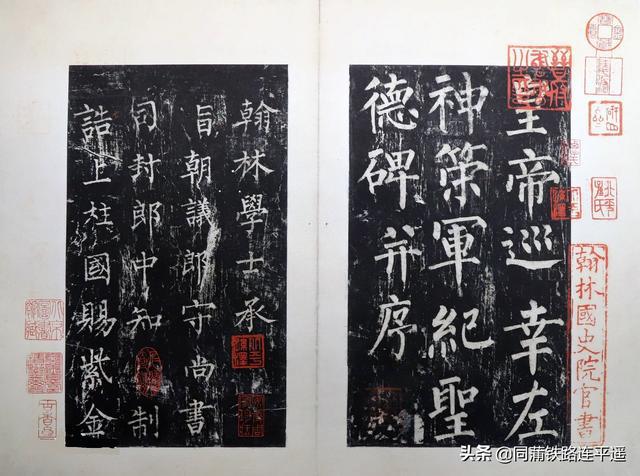 皇帝巡幸左
神策軍紀聖
德碑并序
翰林國史院官書
翰林學士承
旨朝議郎守尚書
司封郎中知制
誥上柱國賜紫金
头条 @同蒲铁路连平遥